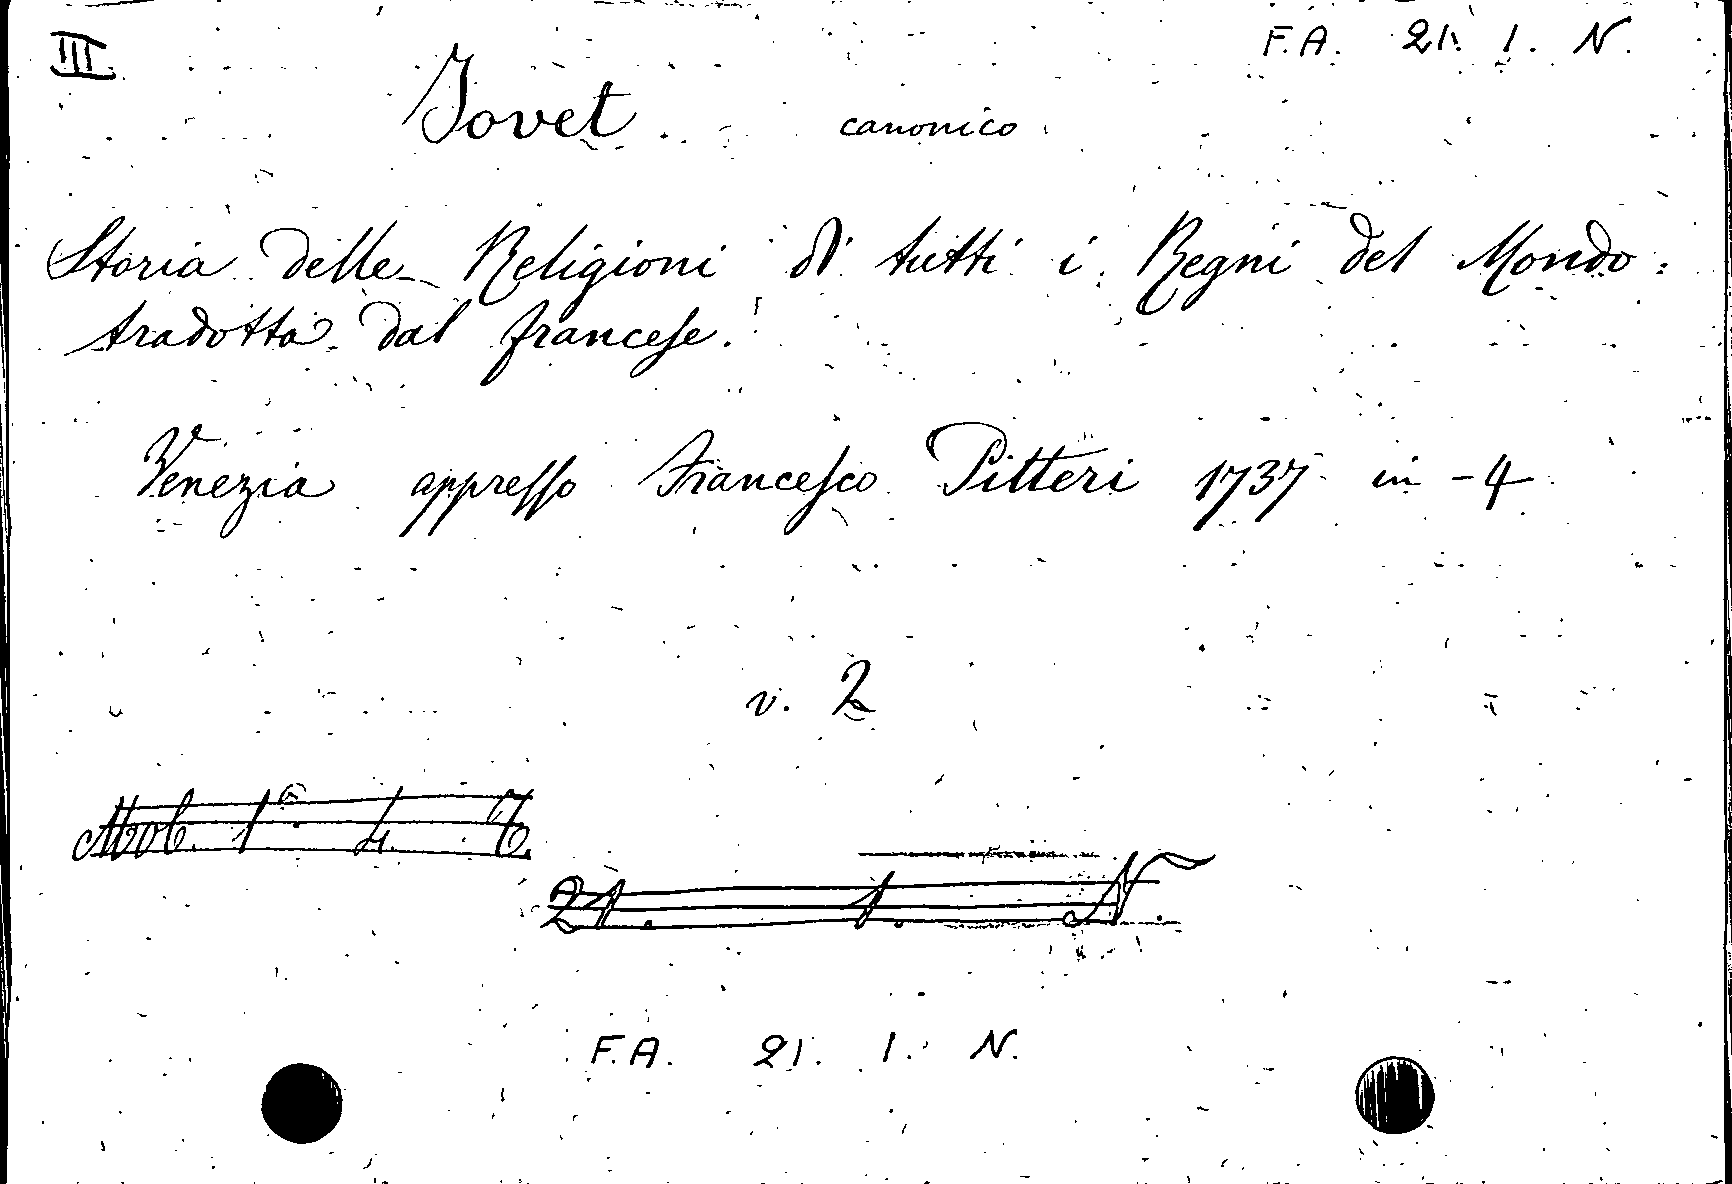 III
F.A. 21. 1. N.
Jovet. canonico.
Storia delle Religioni di tutti i Regni del Mondo
tradotta dal francese.
Venezia appresso Francesco Pitteri 1737 in-4
v. 2
1º. 4
21. 1. N.
F.A. 21. 1. N.